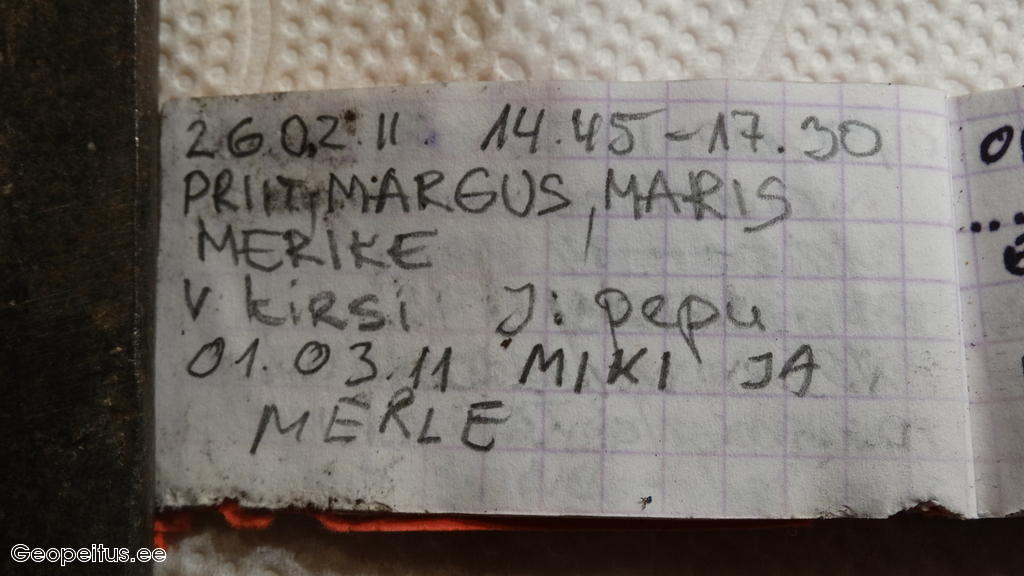 26.02.11 14.45-17.30
PRIIT, MARGUS, MARIS
MERIKE
V: kirsi J: pepu
01.03.11 MIKI JA
MERLE
Geopeitus.ee